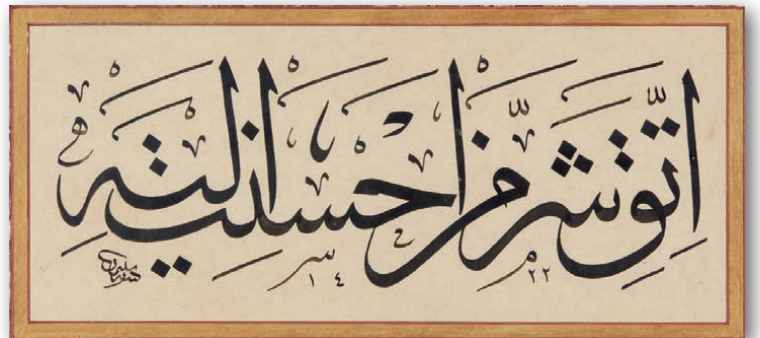 اِتَّقِ شَرَّ مَنْ اَحْسَنْتَ اِلَيْهِ
١٤٢٢